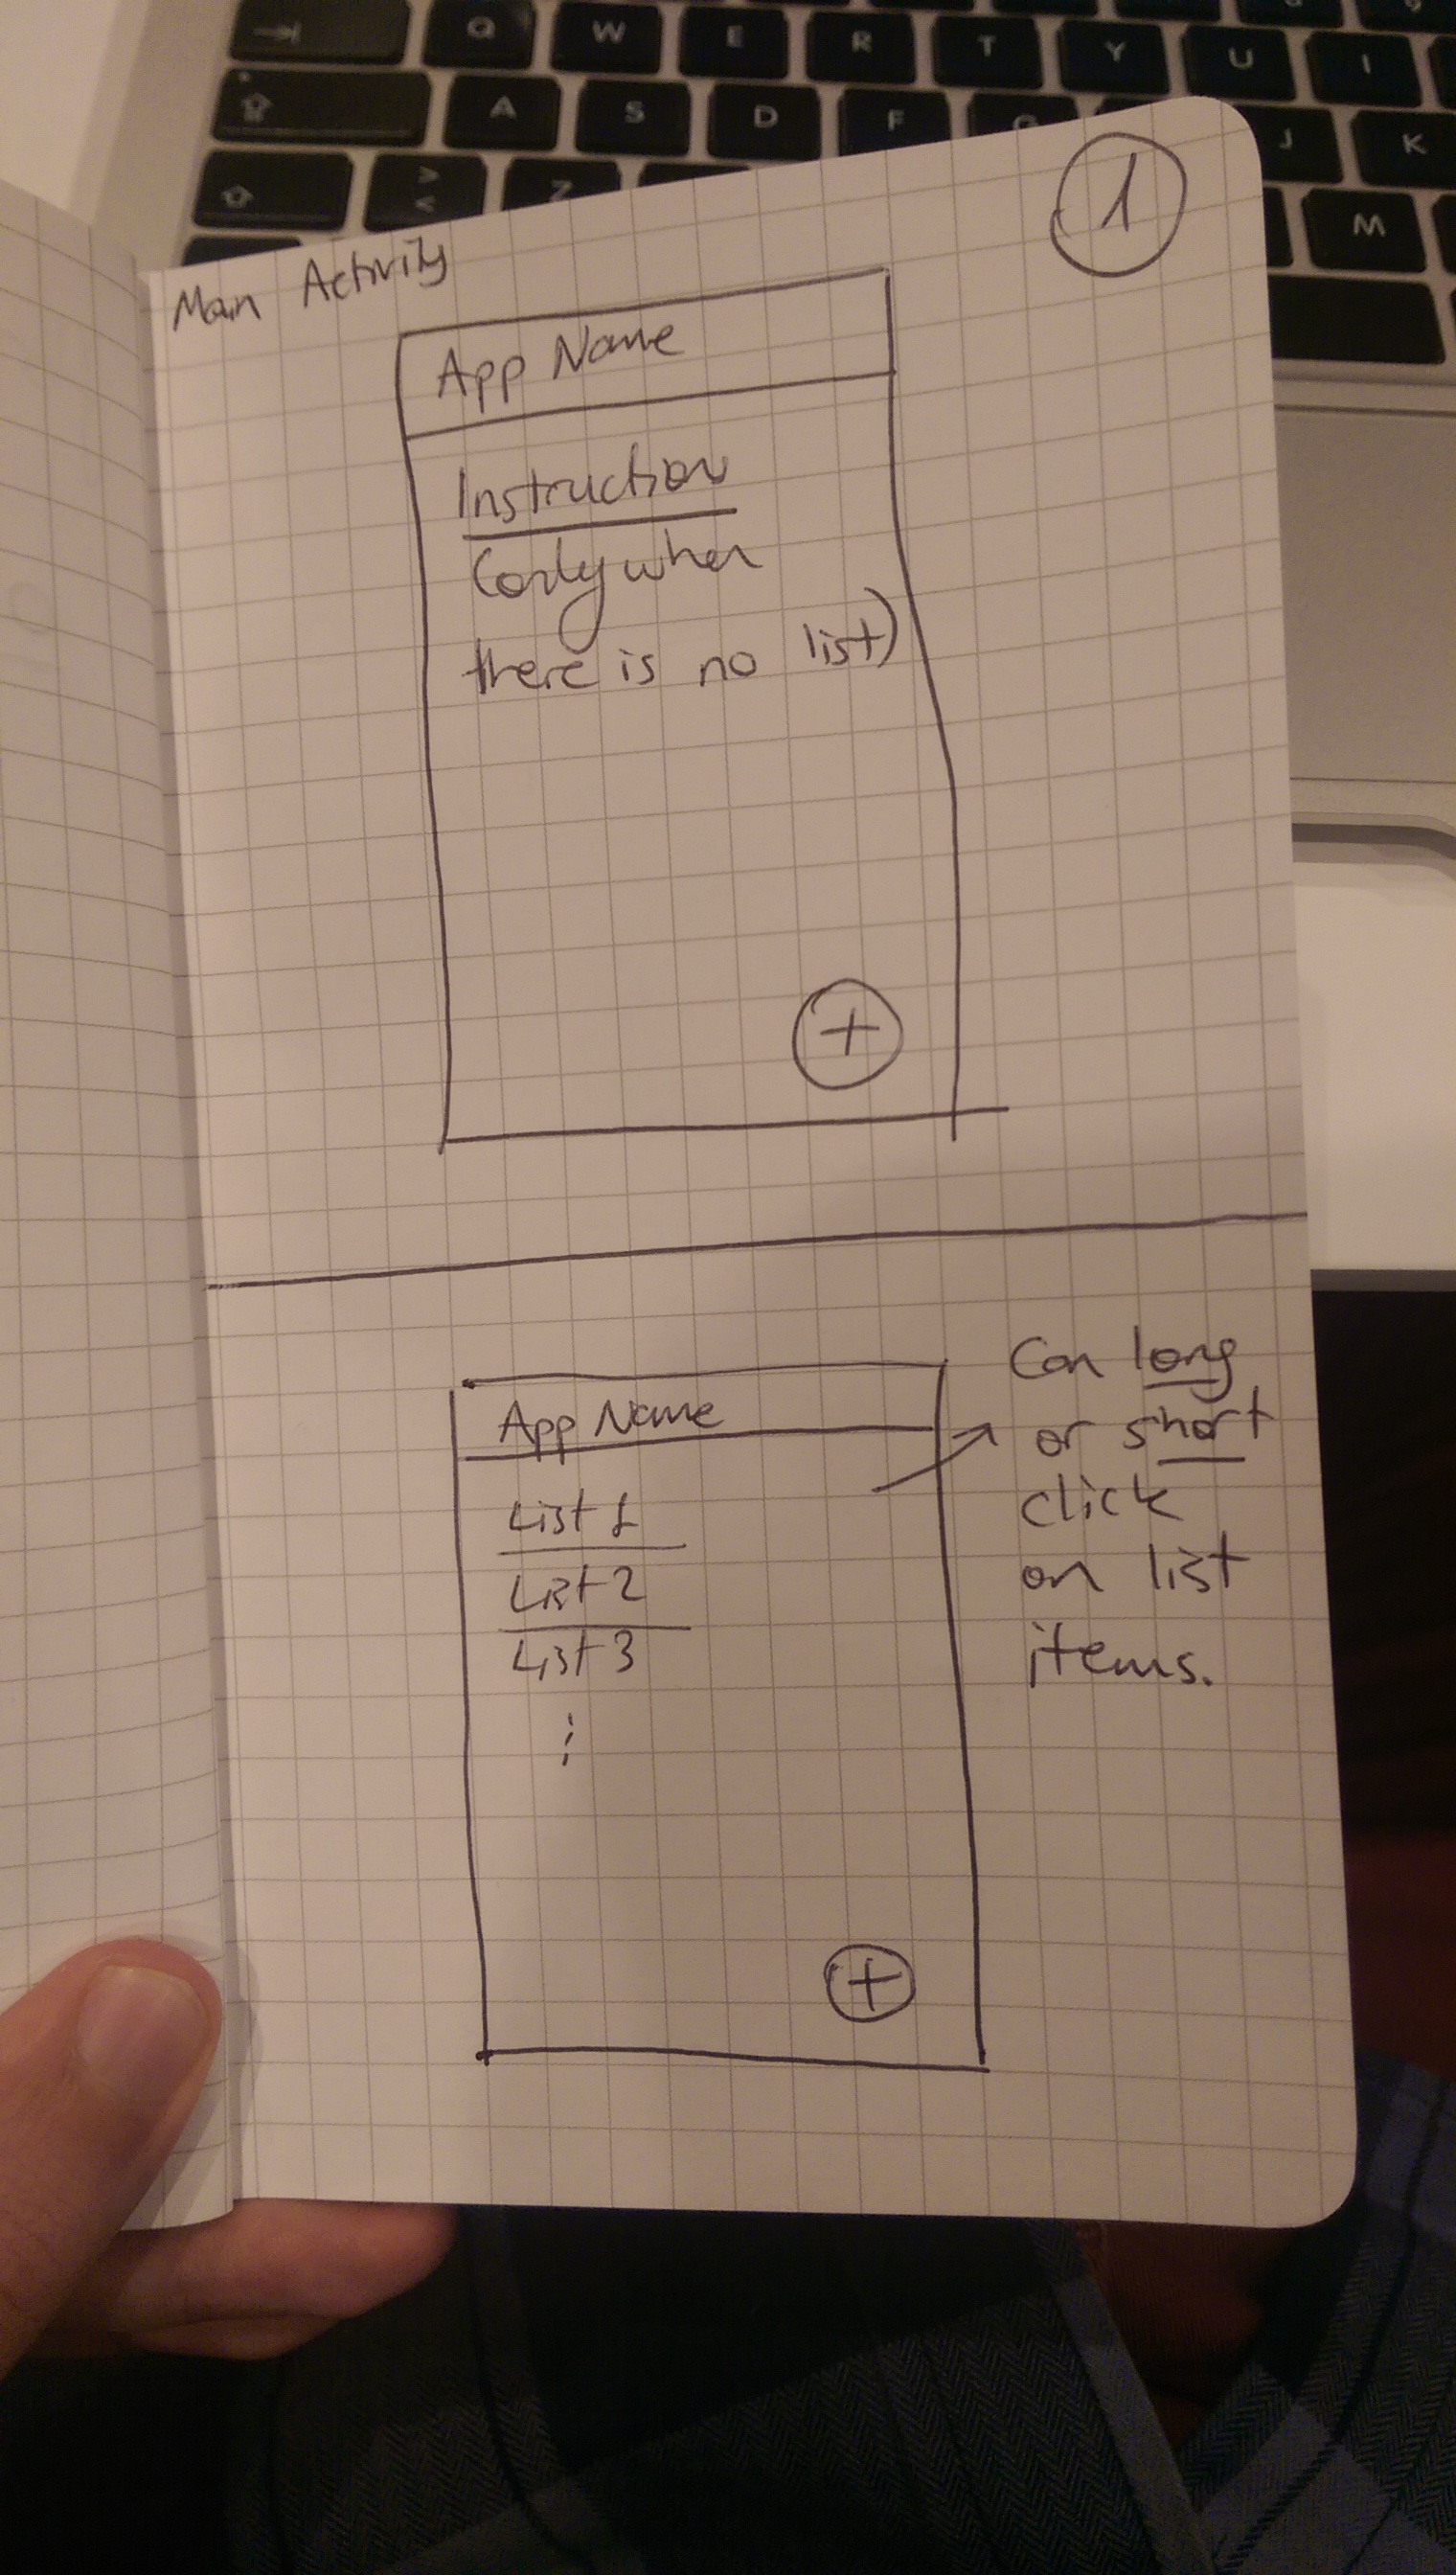 Q W E R T Y U I
A S D F G J K
> Z M
<
1
Main Activity
App Name
Instruction
(only when
there is no list)
+
App Name
List 1
List 2
List 3
⋮
+
Can long
or short
click
on list
items.